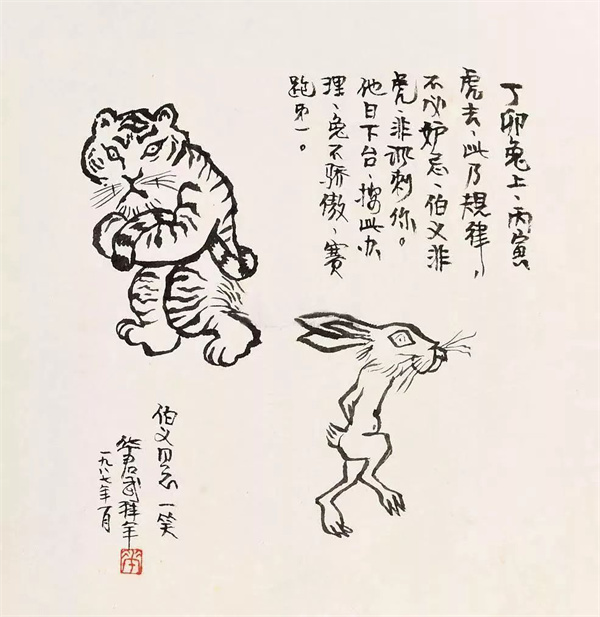 丁卯兔上、丙寅
虎去、此乃規律，
不必妒忌、伯文非
虎、非讽刺你。
他日下台、按此办
理、兔不骄傲、赛
跑第一。
伯文同志一笑
华君武拜年
一九八七年一月